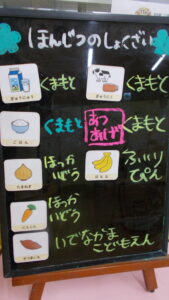 ほんじつのしょくざい
ぎゅうにゅう
くまもと
ぎゅうにく
くまもと
ごはん
くまもと
あつあげ
くまもと
たまねぎ
ほっかいどう
ばなな
ふぃりぴん
にんじん
ほっかいどう
さつまいも